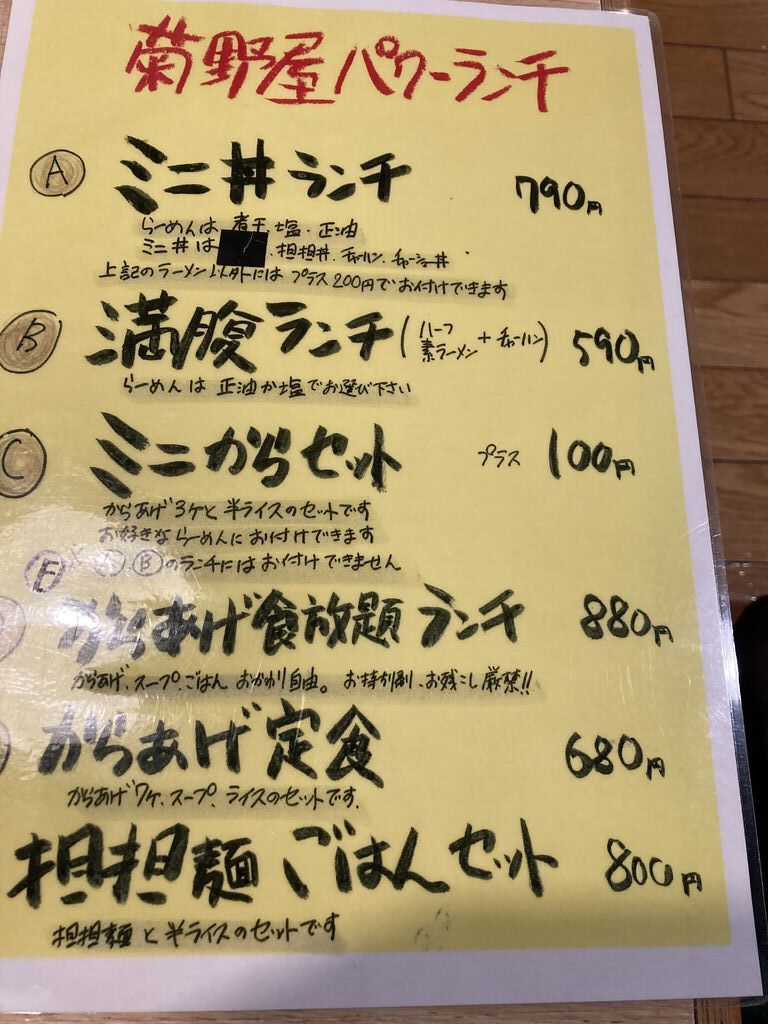 菊野屋パワーランチ
A ミニ丼ランチ 790円
らーめんは 煮干.塩.正油
ミニ丼は .担担丼.チャーハン.チャーシュー丼.
上記のラーメン以外には プラス200円でお付けできます
B 満腹ランチ(ハーフ素ラーメン+チャーハン) 590円
らーめんは 正油か塩でお選び下さい
C ミニからセット プラス 100円
からあげ3ケと半ライスのセットです
お好きならーめんにお付けできます
E ※A.Bのランチにはお付けできません
からあげ食放題ランチ 880円
からあげ、スープ、ごはん おかわり自由。 お持ち帰り、お残し厳禁!!
からあげ定食 680円
からあげ7ケ、スープ、ライスのセットです.
担担麺ごはんセット 800円
担担麺と半ライスのセットです